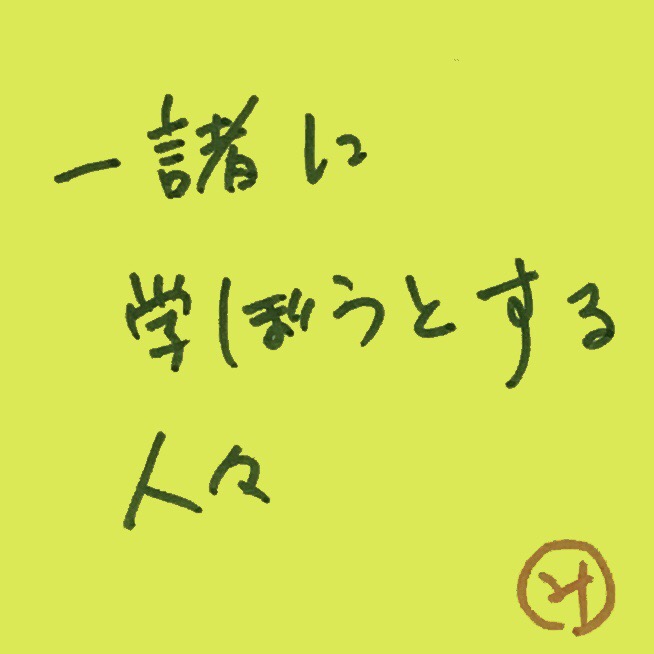 一諸に
学ぼうとする
人々